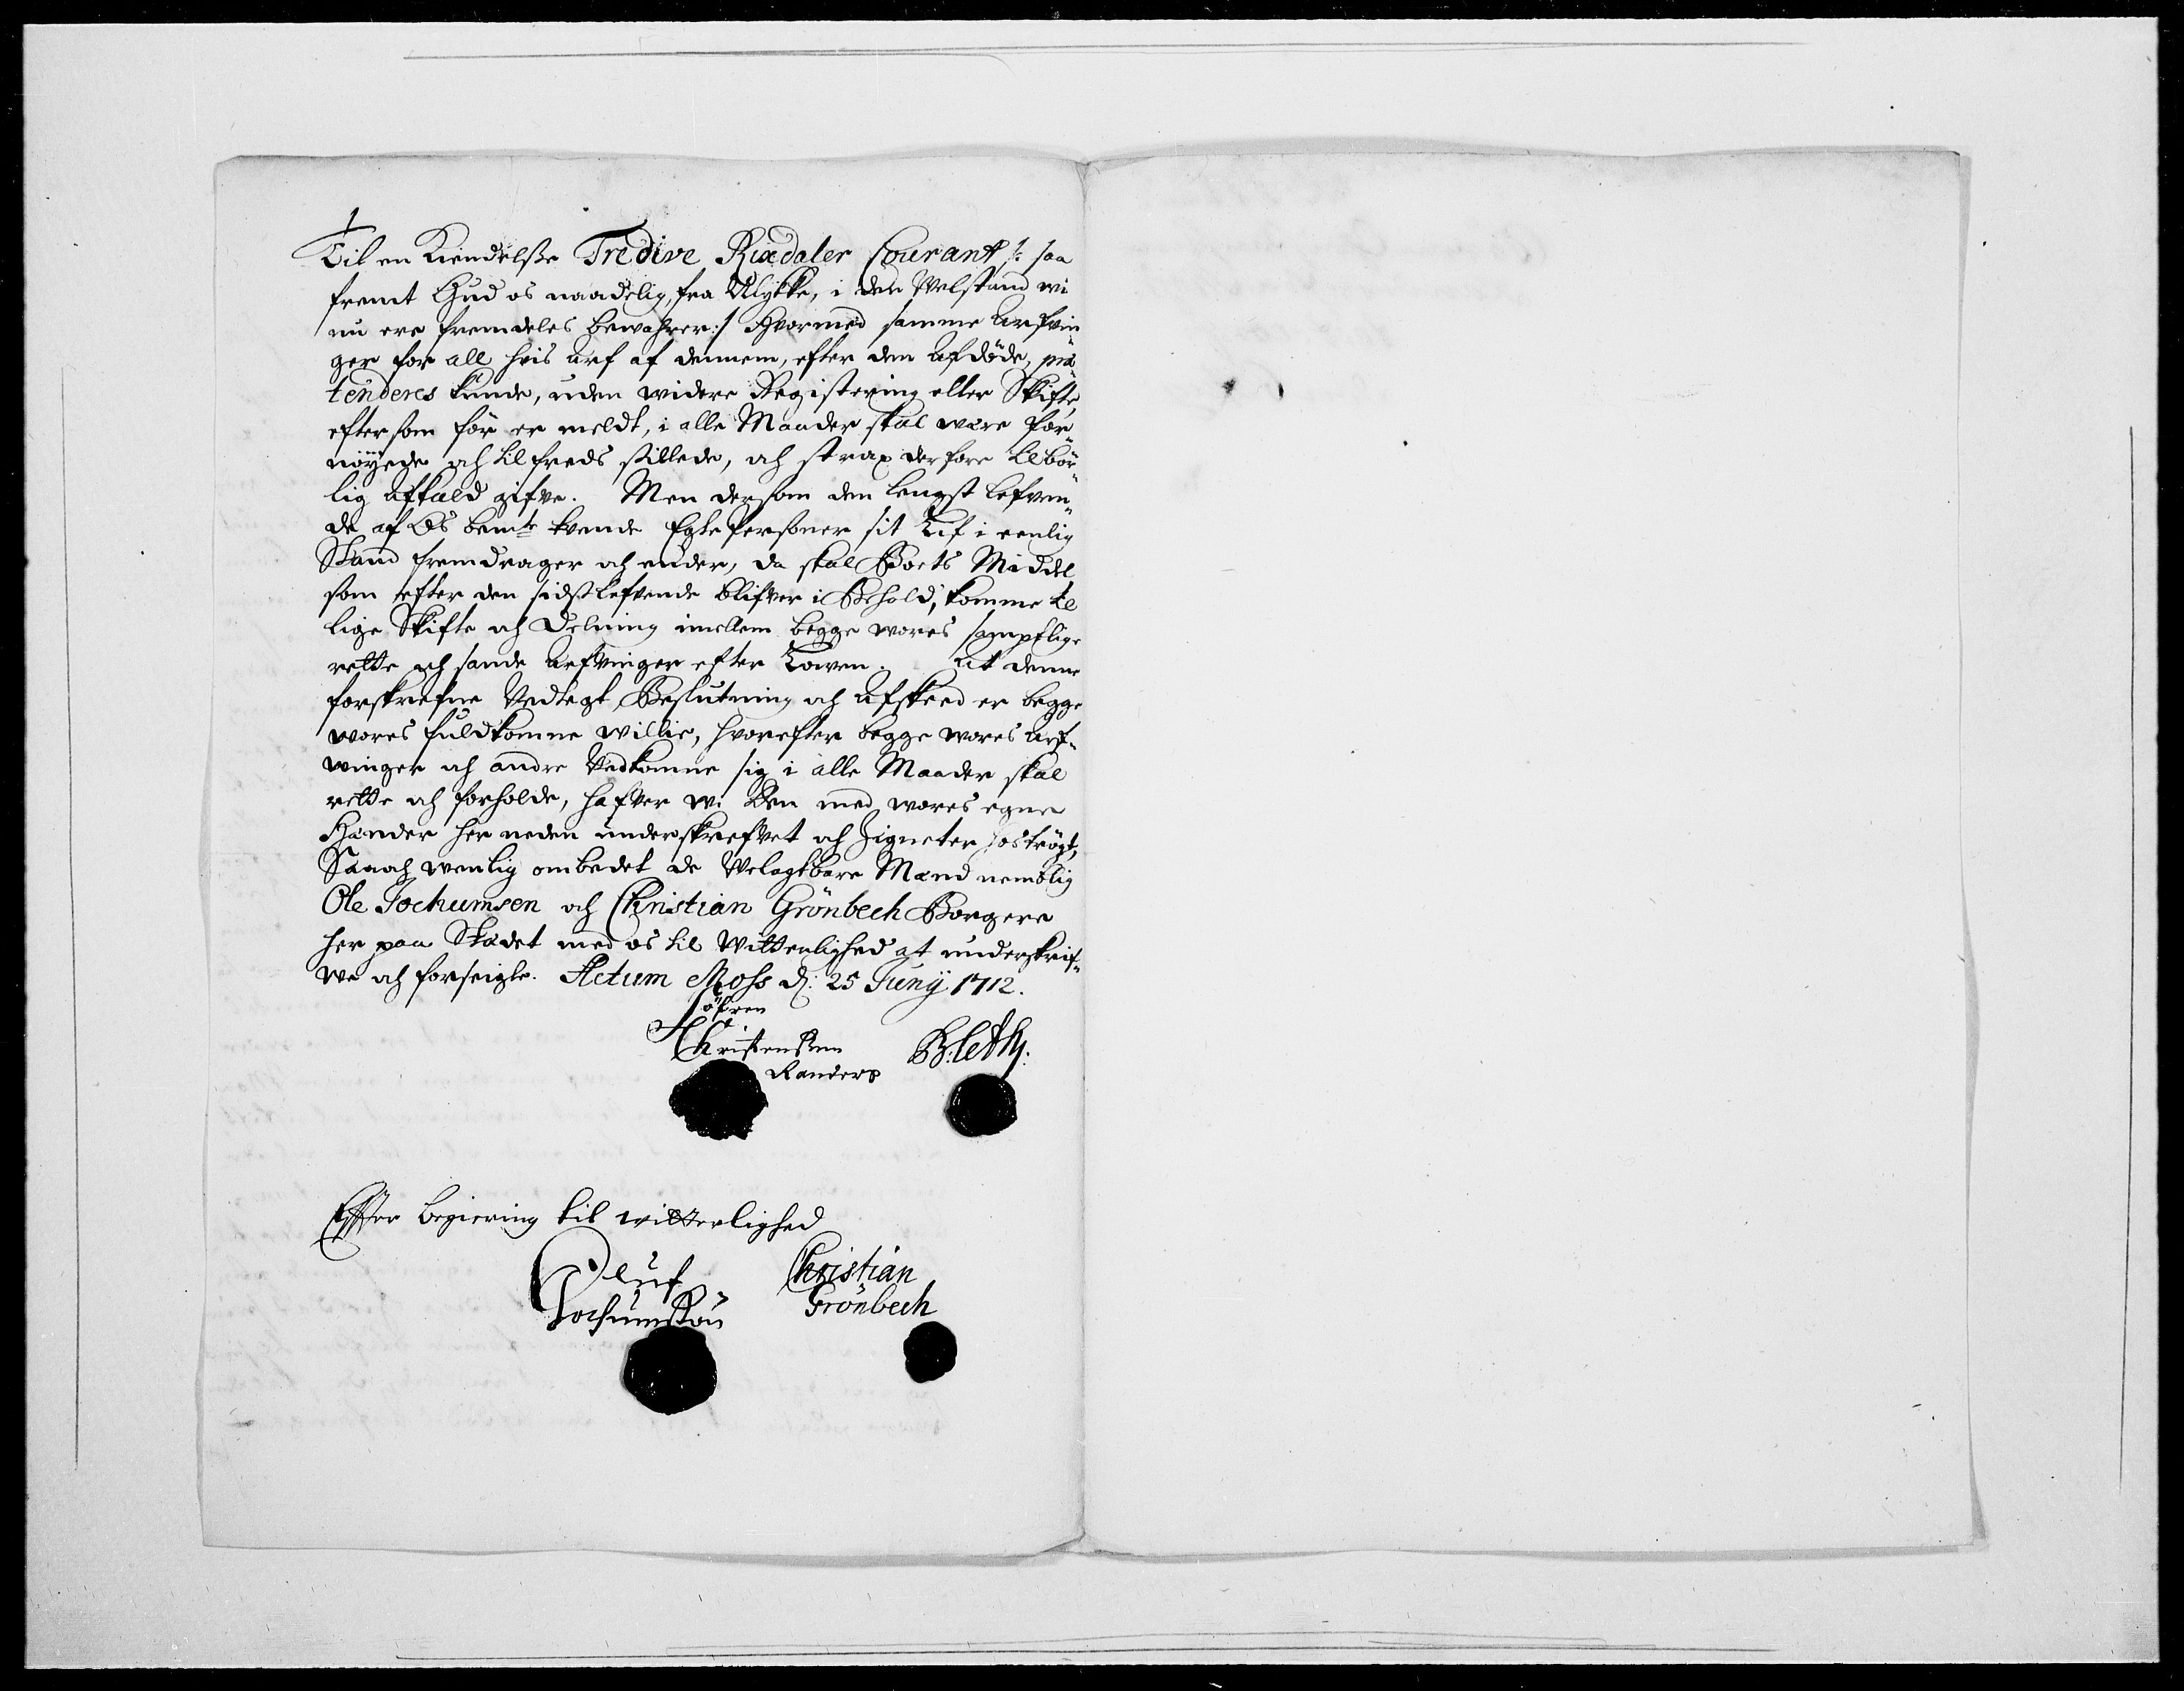 Til en Kiendelsse Tredive Rixdaler Courant /: saa
fremt Gud os naadelig, fra Ulykke, i den Velstand vi
nu ere fremdeles bewahrer :/ Hvormed samme Arfvin¬
ger for all hvis arf af dennem, efter den afdøde, præ¬
tenderes kunde, uden widere Registering eller Skifte,
eftersom før er meldt, i alle Maader skal være for¬
nøyede och tilfreds stillede, och strax derfore tilbør¬
lig afkald gifve. Men dersom den længst lefven¬
de af Os bemte tvende Egte Personer sit Lif i eenlig
Stand fremdrager och ender, da skal Boets Middel
som efter den sidst lefvende blifver i Behold, komme til
lige Skifte och Delning imellem begge vores samptlige
rette och sande Arfvinger efter Lowen. At denne
forskrefne Vedtegt, Beslutning och Afskeed er begge
wores fuldkomne willie, hvorefter begge wores Arf¬
winger och andre Vedkomne sig i alle Maader skal
rette och forholde, hafver wi Den med wores egne
Hænder her neden underskrefvet och Zigneter hostrøgt,
Saa och wenlig ombedet de Velagtbare Mænd nemblig
Ole Jochumsen och Christian Grönbech Borgere
her paa Stædet med os til Vitterlighed at underskrif¬
we och forseigle. Actum Moss d: 25 Junij 1712.
Söfren
Christensen
Randers
B: leth:
Efter begiering til vitterlighed
Oeluf
Jochumsön
Christian
Grönbech